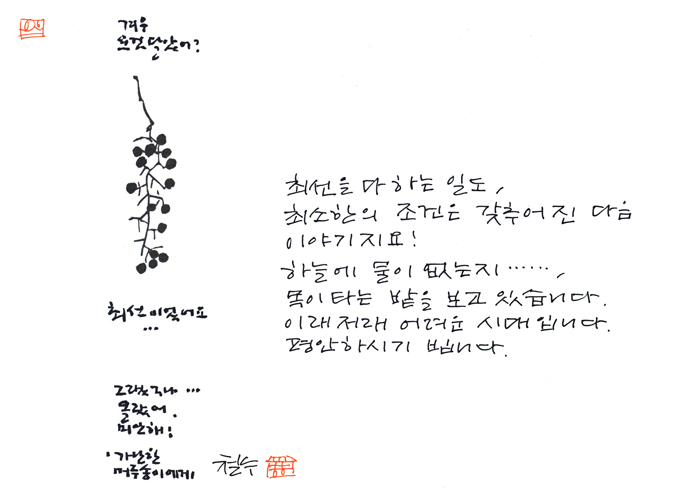 겨우
요것 달았어?
최선이었어요
...
그랬구나 ...
몰랐어.
미안해!
'가난한
머루송이에게'
철수
최선을 다 하는 일도,
최소한의 조건은 갖추어 진 다음
이야기지요!
하늘에 물이 없는지 ······,
목이 타는 밭을 보고 있습니다.
이래저래 어려운 시대입니다.
평안하시기 빕니다.